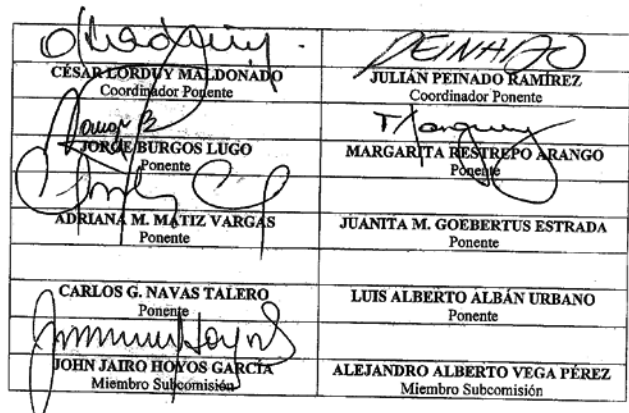 PEINADO
CÉSAR LORDUY MALDONADO
Coordinador Ponente
JULIÁN PEINADO RAMÍREZ
Coordinador Ponente
JORGE BURGOS LUGO
Ponente
MARGARITA RESTREPO ARANGO
Ponente
ADRIANA M. MATIZ VARGAS
Ponente
JUANITA M. GOEBERTUS ESTRADA
Ponente
CARLOS G. NAVAS TALERO
Ponente
LUIS ALBERTO ALBÁN URBANO
Ponente
JOHN JAIRO HOYOS GARCÍA
Miembro Subcomisión
ALEJANDRO ALBERTO VEGA PÉREZ
Miembro Subcomisión